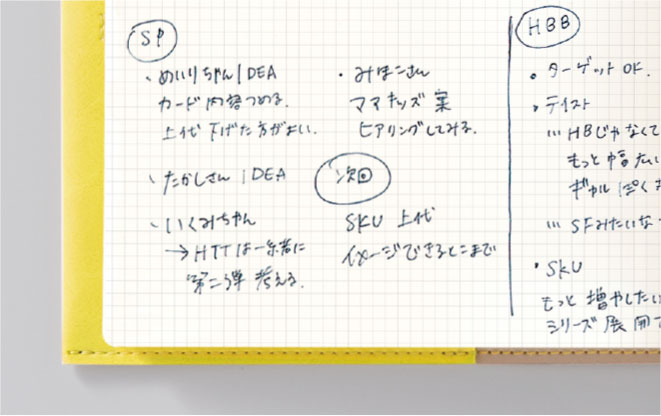 SP
・めいりちゃんIDEA
カード内容つめる.
上代下げた方がよい.
・たかしさんIDEA
・いくみちゃん
→HTTは一緒に
第二弾 考える.
・みほこさん
ママキッズ案
ヒアリングしてみる.
次回
SKU 上代
イメージできるとこまで
HBB
・ターゲットOK.
・テイスト
…HBじゃなくて
もっと幅広い
ギャルぽく
…SFみたいな
・SKU
もっと増やしたい
シリーズ展開